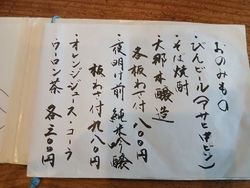 おのみもの
・びんビール(アサヒ中ビン)
・そば焼酎
・天那 本醸造
各板わさ付 八〇〇円
・夜明け前 純米吟醸
板わさ付 九八〇円
・オレンジジュース・コーラ
・ウーロン茶 各三〇〇円